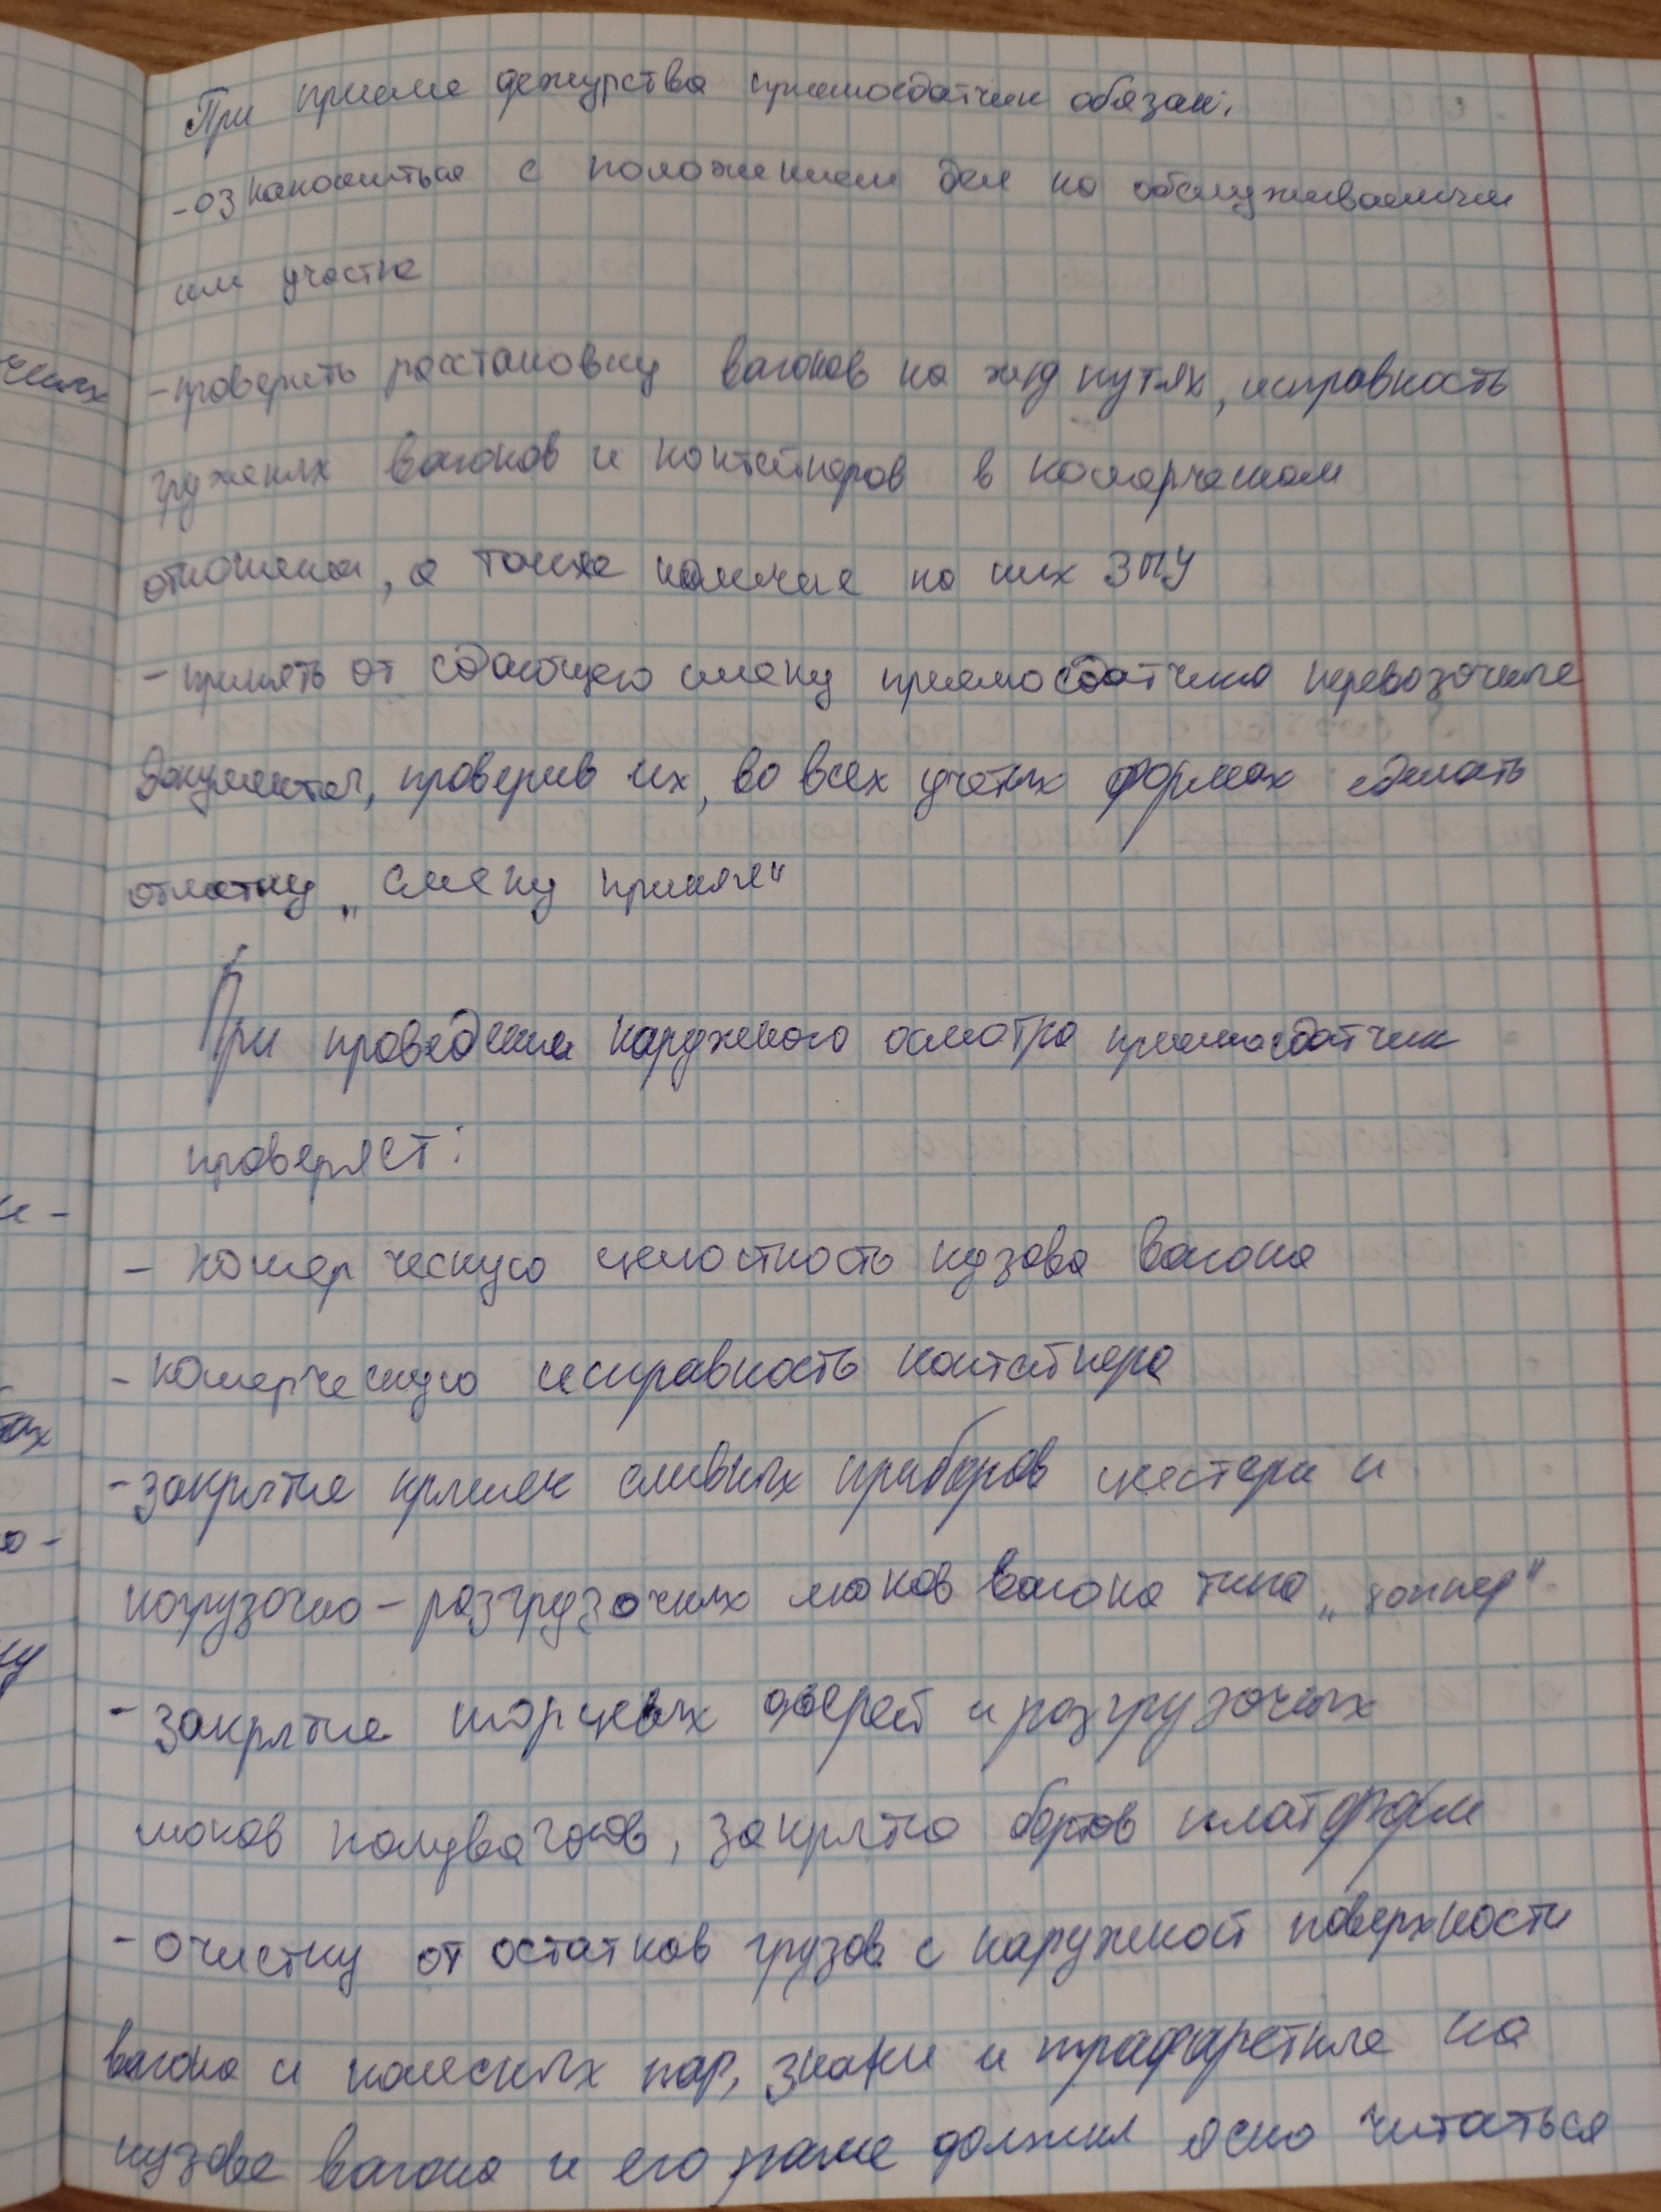 При приеме дежурства приемосдатчик обязан:
- ознакомиться с положением дел на обслуживаемым
им участке
- проверить расстановку вагонов на жд путях, исправность
груженых вагонов и контейнеров в комерческом
отношении, а также наличие на них ЗПУ
- принять от сдающего смену приемосдатчика перевозочные
документы, проверив их, во всех учетных формах сделать
отметку „смену принял“
При проведении наружного осмотра приемосдатчик
проверяет:
- комерческую целостность кузова вагона
- комерческую исправность контейнера
- закрытие крышек сливных приборов цистерн и
погрузочно-разгрузочных люков вагона типа „хоппер“
- закрытие торцевых дверей и разгрузочных
люков полувагонов, закрытие бортов платформ
- очистку от остатков грузов с наружной поверхности
вагона и колесных пар, знаки и трафаретные на
кузове вагона и его раме должны ясно читаться
чениях
е -
тах
о -
ну